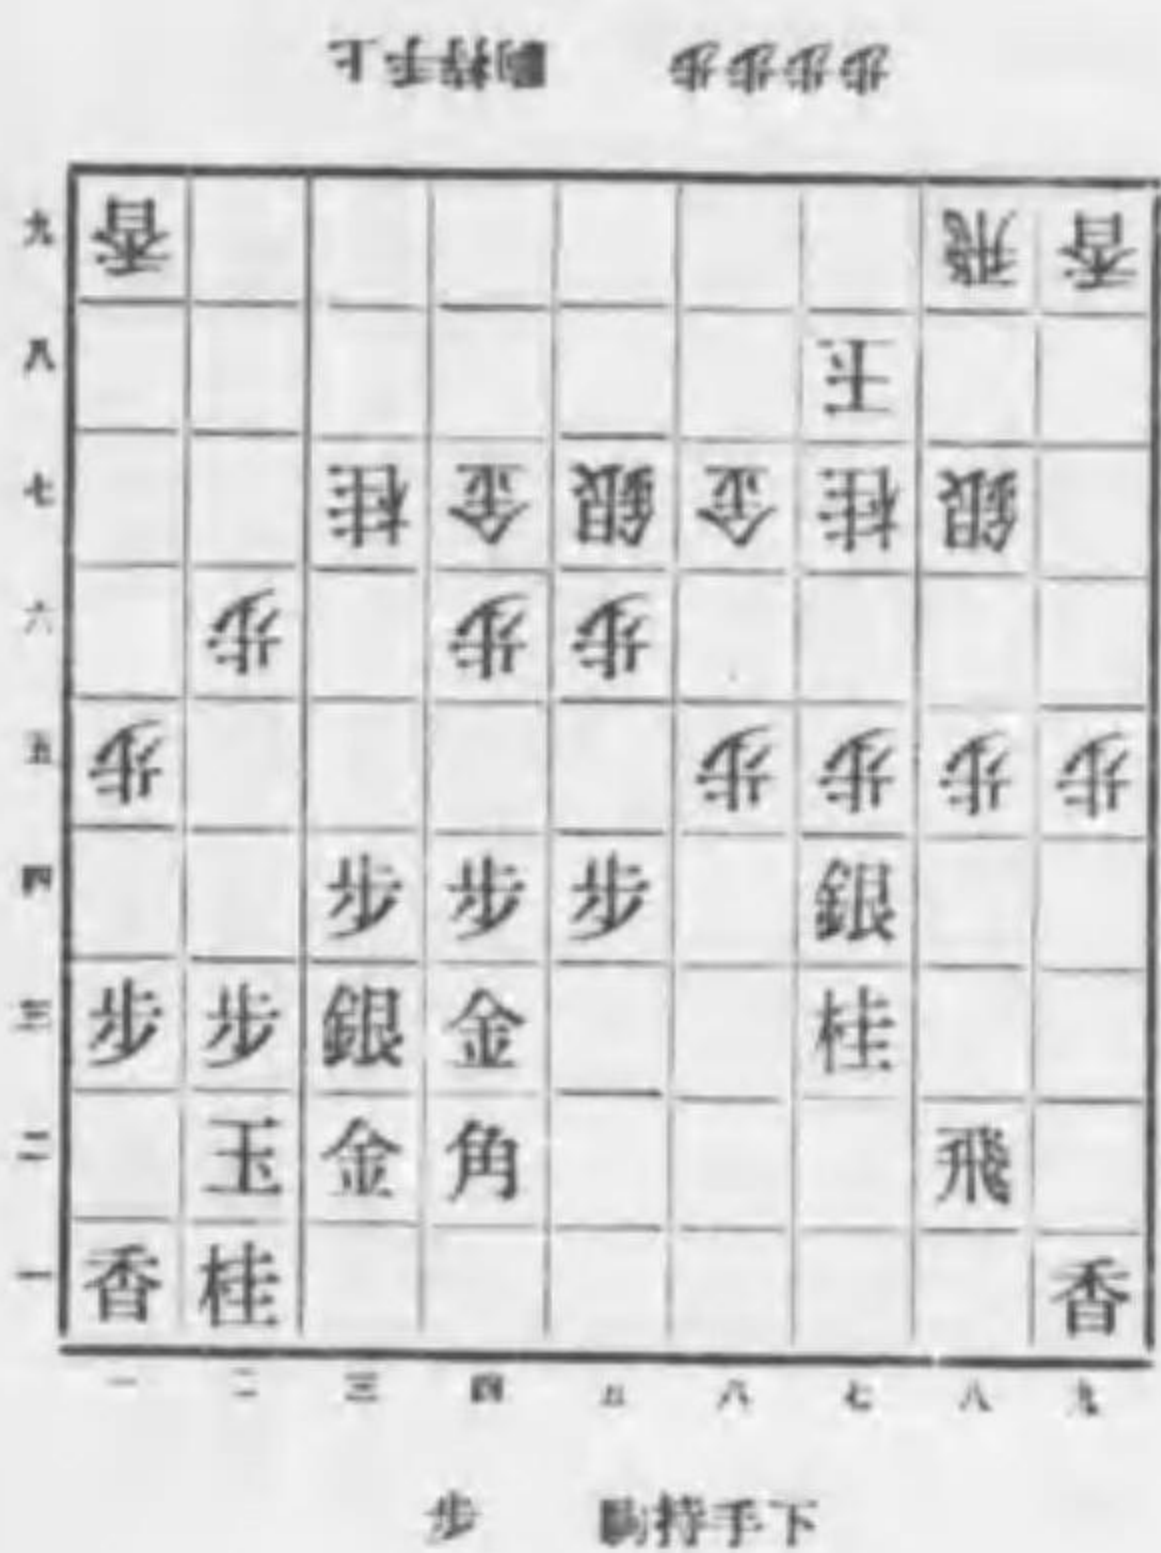 上手持駒 歩歩歩歩
九 香 飛 香
八 王
七 桂 金 銀 金 桂 銀
六 歩 歩 歩
五 歩 歩 歩 歩 歩
四 歩 歩 歩 銀
三 歩 歩 銀 金 桂
二 玉 金 角 飛
一 香 桂 香
一 二 三 四 五 六 七 八 九
下手持駒 歩